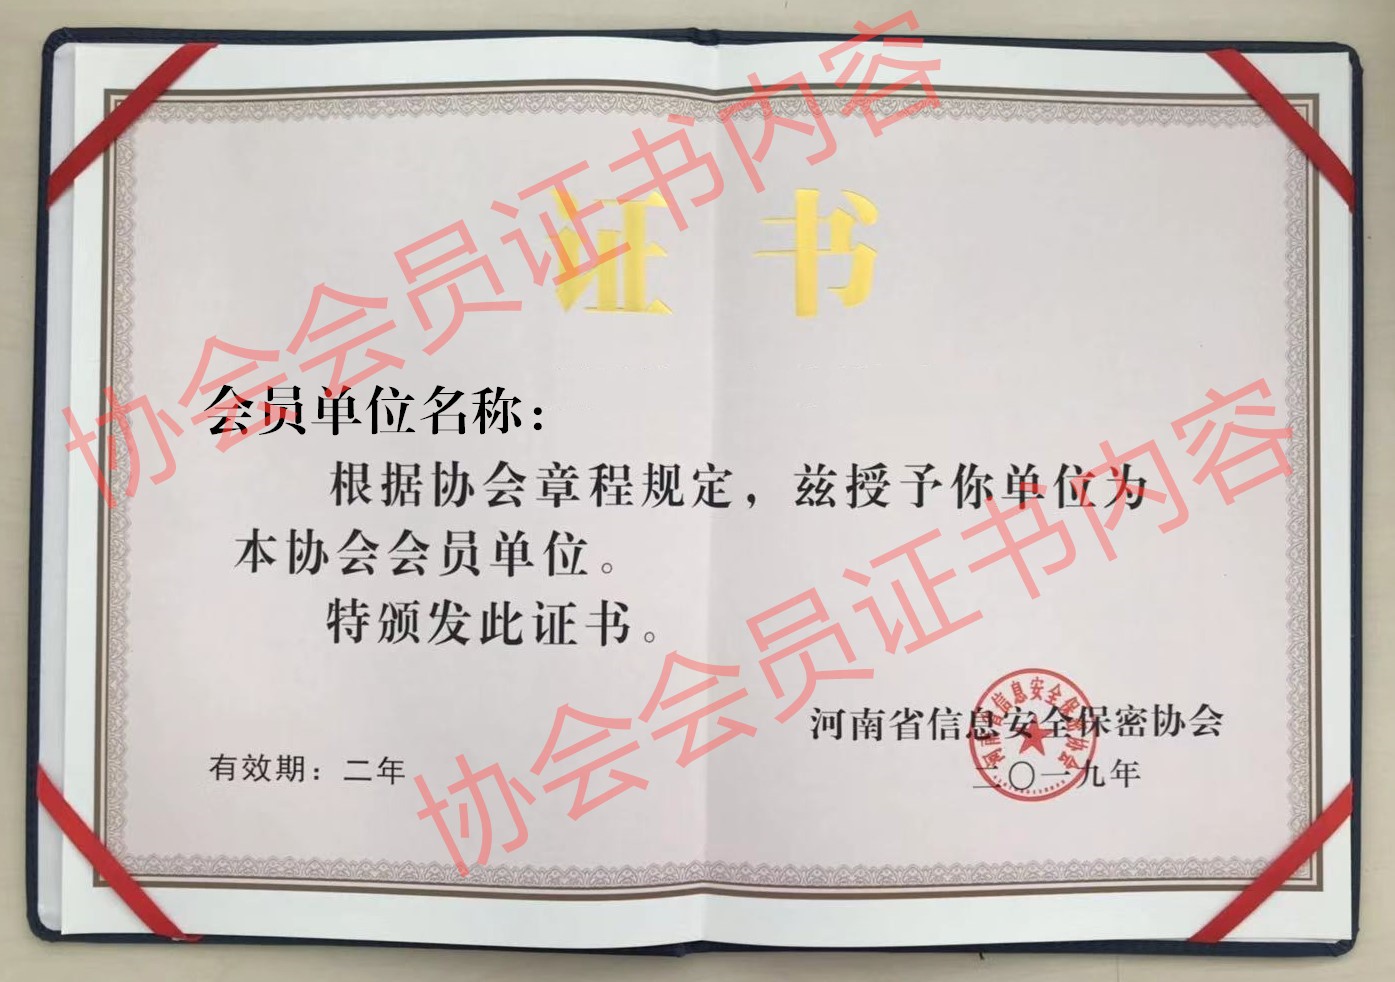 证书
会员单位名称：
根据协会章程规定，兹授予你单位为
本协会会员单位。
特颁发此证书。
河南省信息安全保密协会
二〇一九年
有效期：二年
河南省信息安全保密协会
协会会员证书内容
协会会员证书内容